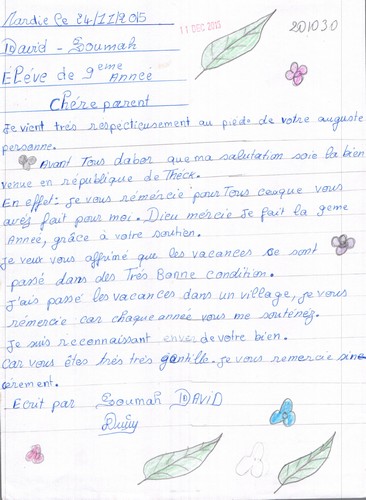 Mardie le 24/11/2015
11 DEC 2015
201030
David - Soumah
Eléve de 9eme Année
Chére parent
Je vient trés respectieusement au pieds de votre auguste
personne.
Avant Tous dabor que ma salutation soie la bien
venue en république de Théck.
En effet. je vous rémércie pour Tous ceuque vous
avez fait pour moi. Dieu mercie Je fait la 9eme
Année, grâce à votre soutien.
Je veux vous affirmé que les vacances se sont
passé dans des Trés Bonne condition.
J'ais passé les vacances dans un village, je vous
rémercie car chaque année vous me souténez.
Je suis reconnaissant enver de votre bien.
Car vous êtes trés trés gentille. Je vous remercie sin
cérement.
Ecrit par Soumah DAVID